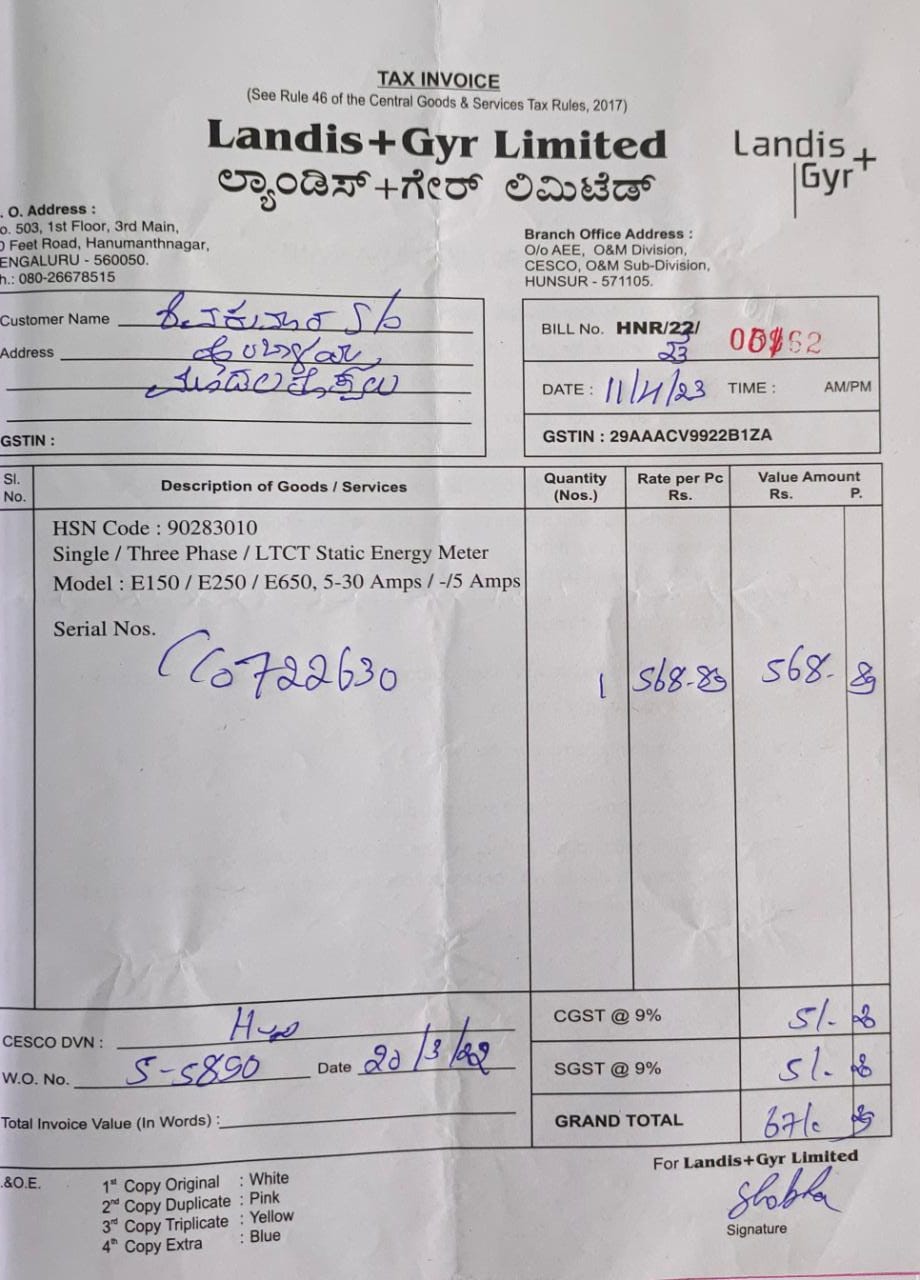 TAX INVOICE
(See Rule 46 of the Central Goods & Services Tax Rules, 2017)
Landis+Gyr Limited
ಲ್ಯಾಂಡಿಸ್+ಗೇರ್ ಲಿಮಿಟೆಡ್
Landis+
Gyr
. O. Address :
o. 503, 1st Floor, 3rd Main,
0 Feet Road, Hanumanthnagar,
ENGALURU - 560050.
h.: 080-26678515
Branch Office Address :
O/o AEE, O&M Division,
CESCO, O&M Sub-Division,
HUNSUR - 571105.
Customer Name S/o
Address
GSTIN :
BILL No. HNR/22/
23
DATE : 11/4/23 TIME : AM/PM
GSTIN : 29AAACV9922B1ZA
Sl. No. Description of Goods / Services Quantity (Nos.) Rate per Pc Rs. Value Amount Rs. P.
HSN Code : 90283010
Single / Three Phase / LTCT Static Energy Meter
Model : E150 / E250 / E650, 5-30 Amps / -/5 Amps
Serial Nos.
722630 1 568-89 568- 89
CESCO DVN :
W.O. No. 5-5890 Date
Total Invoice Value (In Words) :
CGST @ 9% 51-
SGST @ 9% 51-
GRAND TOTAL 671-
.&O.E.
1st Copy Original : White
2nd Copy Duplicate : Pink
3rd Copy Triplicate : Yellow
4th Copy Extra : Blue
For Landis+Gyr Limited
Shobha
Signature